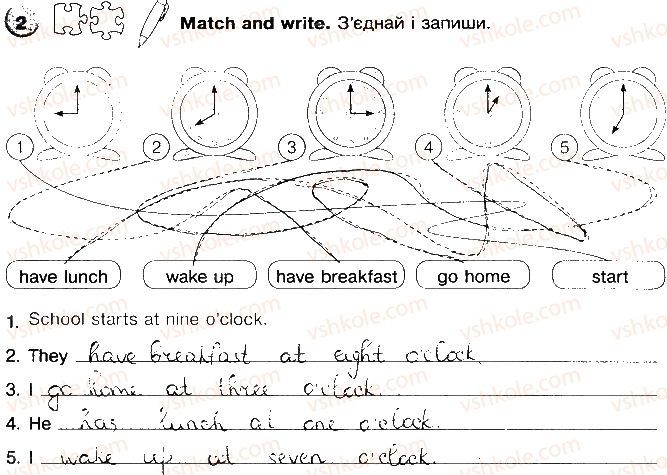 2 Match and write. З'єднай і запиши.
1 2 3 4 5
have lunch wake up have breakfast go home start
1. School starts at nine o'clock.
2. They have breakfast at eight o'clock
3. I go home at three o'clock.
4. He has lunch at one o'clock.
5. I wake up at seven o'clock.
vshkole.com